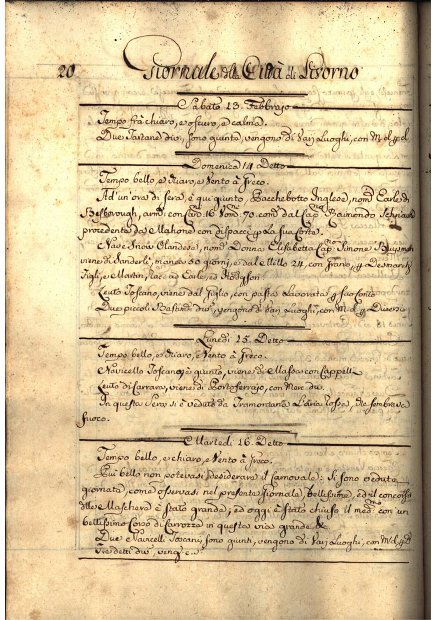 20 Giornale della Città di Livorno
Sabato 13. Febbrajo
Tempo frà chiaro, e oscuro, e calma.
Due Tartane div. sono giunte, vengono di Varj Luoghi, con M. d. p. d.
Domenica 14 Detto
Tempo bello, e chiaro, e Vento à Greco.
Ad un'ora di sera, è qui giunto, Pacchebotto Inglese, nom.° Earle di
Besborough, arm. con Cann. 16 Uom. 70. com. dal Cap. Raimondo
procedente da Mahone con dispacci p. La sua Corte.
Nave Snow Olandese, nom. Donna Elisabetta Cap. Simone
viene di manca 50 giorni, e dal 24, con Grano, p.
Figli, e Martin, Earle, ed Hodgson
Leuto Toscano, viene dal Giglio, con pasta Lavorata p. suo conto
Due piccoli Bastim. div., vengono di Varj Luoghi, con M. d. p. Diversi
Lunedi 15. Detto
Tempo bello, e chiaro, e Vento à Greco.
Navicello Toscano, è giunto, viene di Massa con Cappelli
Leuto di Carrara, viene di Portoferrajo, con Merc. div.
In questa sera si è veduta da Tramontana L'aria rossa, che sembrava
fuoco.
Martedi 16. Detto
Tempo bello, e chiaro, e Vento à Greco.
Più bello non potevasi desiderare il Carnovale: Si sono vedute
giornate, come osservasi nel presente Giornale, bellissime, ed il concorso
delle Maschere è stato grande; ed oggi è stato chiuso il med. con un
bellissimo Corso di Carrozze in questa via grande &c.
Due Navicelli Toscani, sono giunti, vengono di Varj Luoghi, con M. d. p. D
Tre detti div. veng.